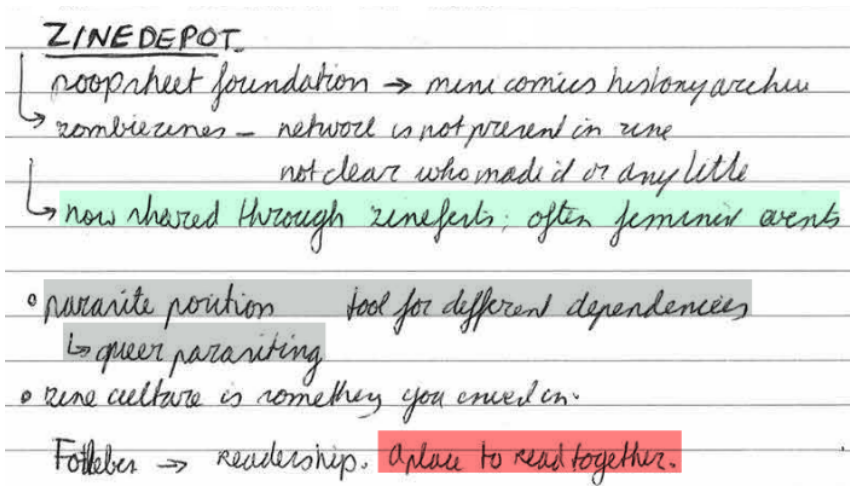 ZINEDEPOT
poopsheet foundation → mini comics history archive
↳ zombiezines - network is not present in zine
not clear who made it or any title
↳ now shared through zinefests; often feminist events
• parasite position tool for different dependencies
↳ queer parasiting
• zine culture is something you in.
→ readership. A place to read together.